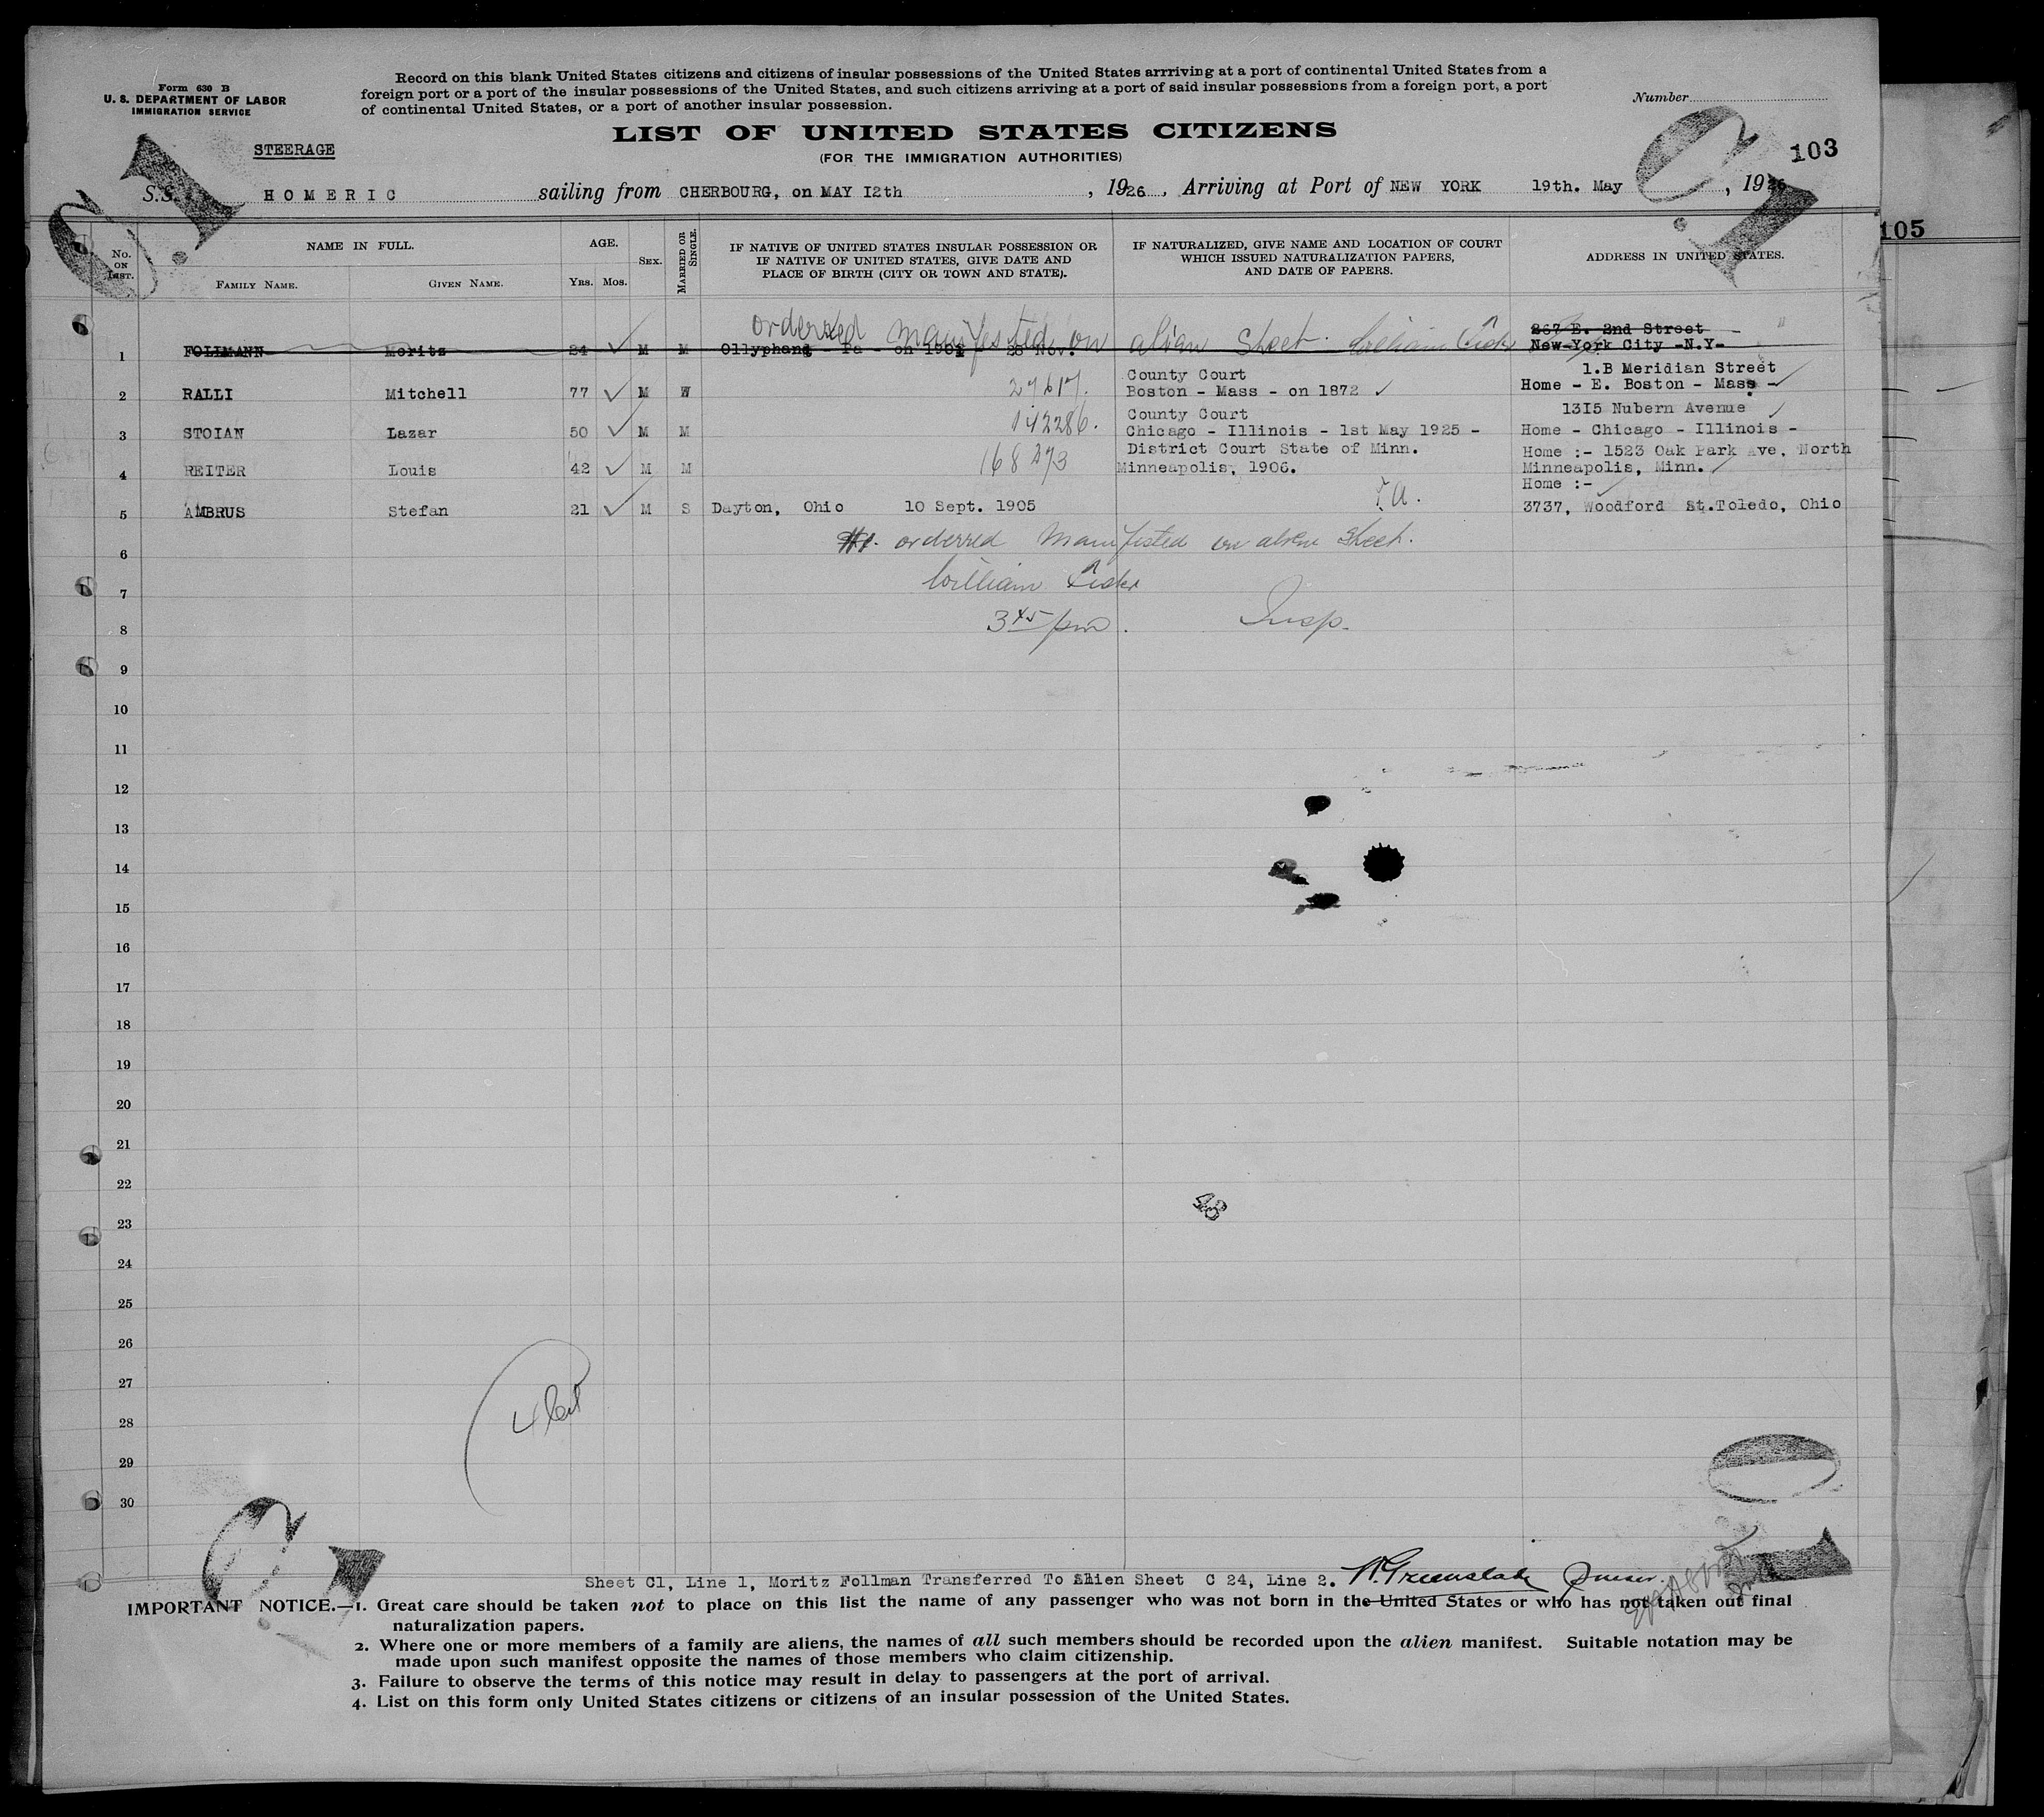 Form 630 B
U. S. DEPARTMENT OF LABOR
IMMIGRATION SERVICE
Record on this blank United States citizens and citizens of insular possessions of the United States arrriving at a port of continental United States from a
foreign port or a port of the insular possessions of the United States, and such citizens arriving at a port of said insular possessions from a foreign port, a port
of continental United States, or a port of another insular possession.
Number
LIST OF UNITED STATES CITIZENS
(FOR THE IMMIGRATION AUTHORITIES)
STEERAGE
103
S.S. HOMERIC sailing from CHERBOURG, on MAY I2th , 1926 , Arriving at Port of NEW YORK 19th. May , 1926
105
No. ON LIST.
NAME IN FULL.
FAMILY NAME.
GIVEN NAME.
AGE.
YRS. MOS.
SEX.
MARRIED OR SINGLE.
IF NATIVE OF UNITED STATES INSULAR POSSESSION OR
IF NATIVE OF UNITED STATES, GIVE DATE AND
PLACE OF BIRTH (CITY OR TOWN AND STATE).
IF NATURALIZED, GIVE NAME AND LOCATION OF COURT
WHICH ISSUED NATURALIZATION PAPERS,
AND DATE OF PAPERS.
ADDRESS IN UNITED STATES.
orderred manifested on alien Sheet. William
267 E. 2nd Street
1 FOLLMANN Moritz 24 M M Ollyphant - Pa - on 1901 28 Nov. New-York City -N.Y-
27617. County Court 1.B Meridian Street
2 RALLI Mitchell 77 M W Boston - Mass - on 1872 Home - E. Boston - Mass -
142286. County Court 13I5 Nubern Avenue
3 STOIAN Lazar 50 M M Chicago - Illinois - 1st May 1925 - Home - Chicago - Illinois -
168 District Court State of Minn. Home :- 1523 Oak Park Ave, North
4 REITER Louis 42 M M Minneapolis, 1906. Minneapolis, Minn.
Home :-
5 AMBRUS Stefan 21 M S Dayton, Ohio 10 Sept. 1905 3737, Woodford St.Toledo, Ohio
#1. orderred manifested on alien Sheet.
6
William
7
3 45 pm. Insp.
8
9
10
11
12
13
14
15
16
17
18
19
20
21
22
23
24
25
26
27
28
29
30
Sheet C1, Line 1, Moritz Follman Transferred To Alien Sheet C 24, Line 2. Purser.
IMPORTANT NOTICE.—1. Great care should be taken not to place on this list the name of any passenger who was not born in the United States or who has not taken out final
naturalization papers.
2. Where one or more members of a family are aliens, the names of all such members should be recorded upon the alien manifest. Suitable notation may be
made upon such manifest opposite the names of those members who claim citizenship.
3. Failure to observe the terms of this notice may result in delay to passengers at the port of arrival.
4. List on this form only United States citizens or citizens of an insular possession of the United States.